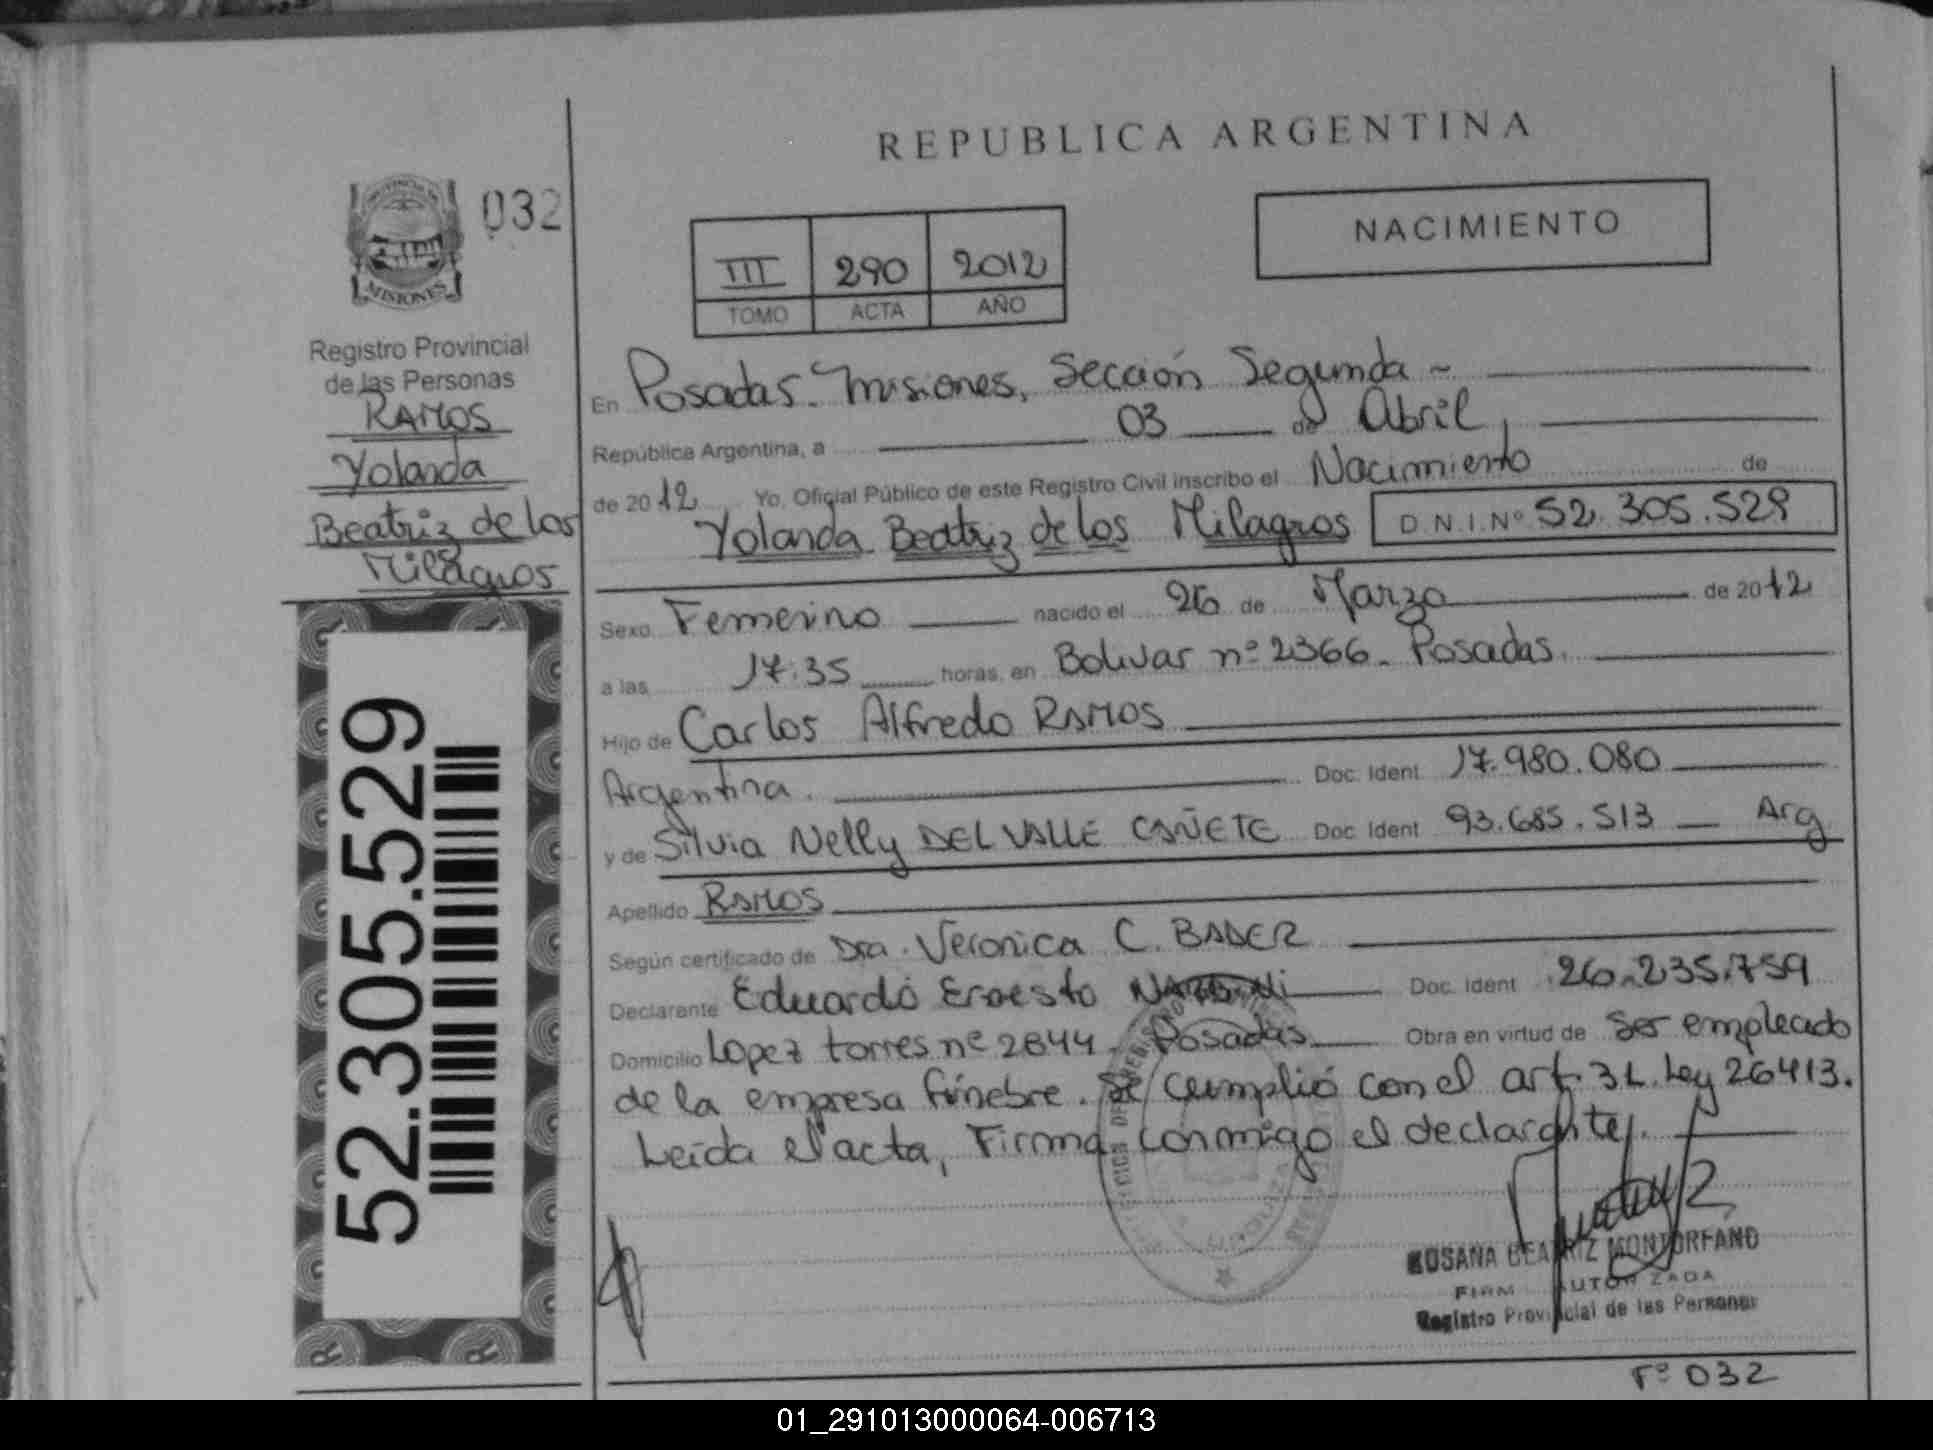 REPUBLICA ARGENTINA
032
NACIMIENTO
III 290 2012
TOMO ACTA AÑO
MISIONES
Registro Provincial
de las Personas
RAMOS
Yolanda
Beatriz de los
Milagros
52.305.529
En Posadas - Misiones, Sección Segunda
República Argentina, a 03 de Abril,
de 2012 Yo, Oficial Público de este Registro Civil inscribo el Nacimiento de
Yolanda Beatriz de los Milagros D.N.I.Nº 52.305.529
Sexo Femenino nacido el 26 de Marzo de 2012
a las 17:35 horas, en Bolivar nº 2366 - Posadas.
Hijo de Carlos Alfredo RAMOS
Argentina. Doc. Ident 17.980.080
y de Silvia Nelly DEL VALLE CAÑETE Doc. Ident 93.685.513 Arg
Apellido RAMOS
Según certificado de Dra. Veronica C. BADER
Declarante Eduardo Ernesto Doc. Ident 26.235.759
Domicilio Lopez torres nº 2844 - Posadas Obra en virtud de Ser empleado
de la empresa fúnebre. Se cumplió con el art. 31. Ley 26413.
Leída el acta, Firma conmigo el declarante.
ROSANA BEATRIZ MONTORFANO
FIRM AUTORIZADA
Registro Provincial de las Personas
Fº 032
01_291013000064-006713